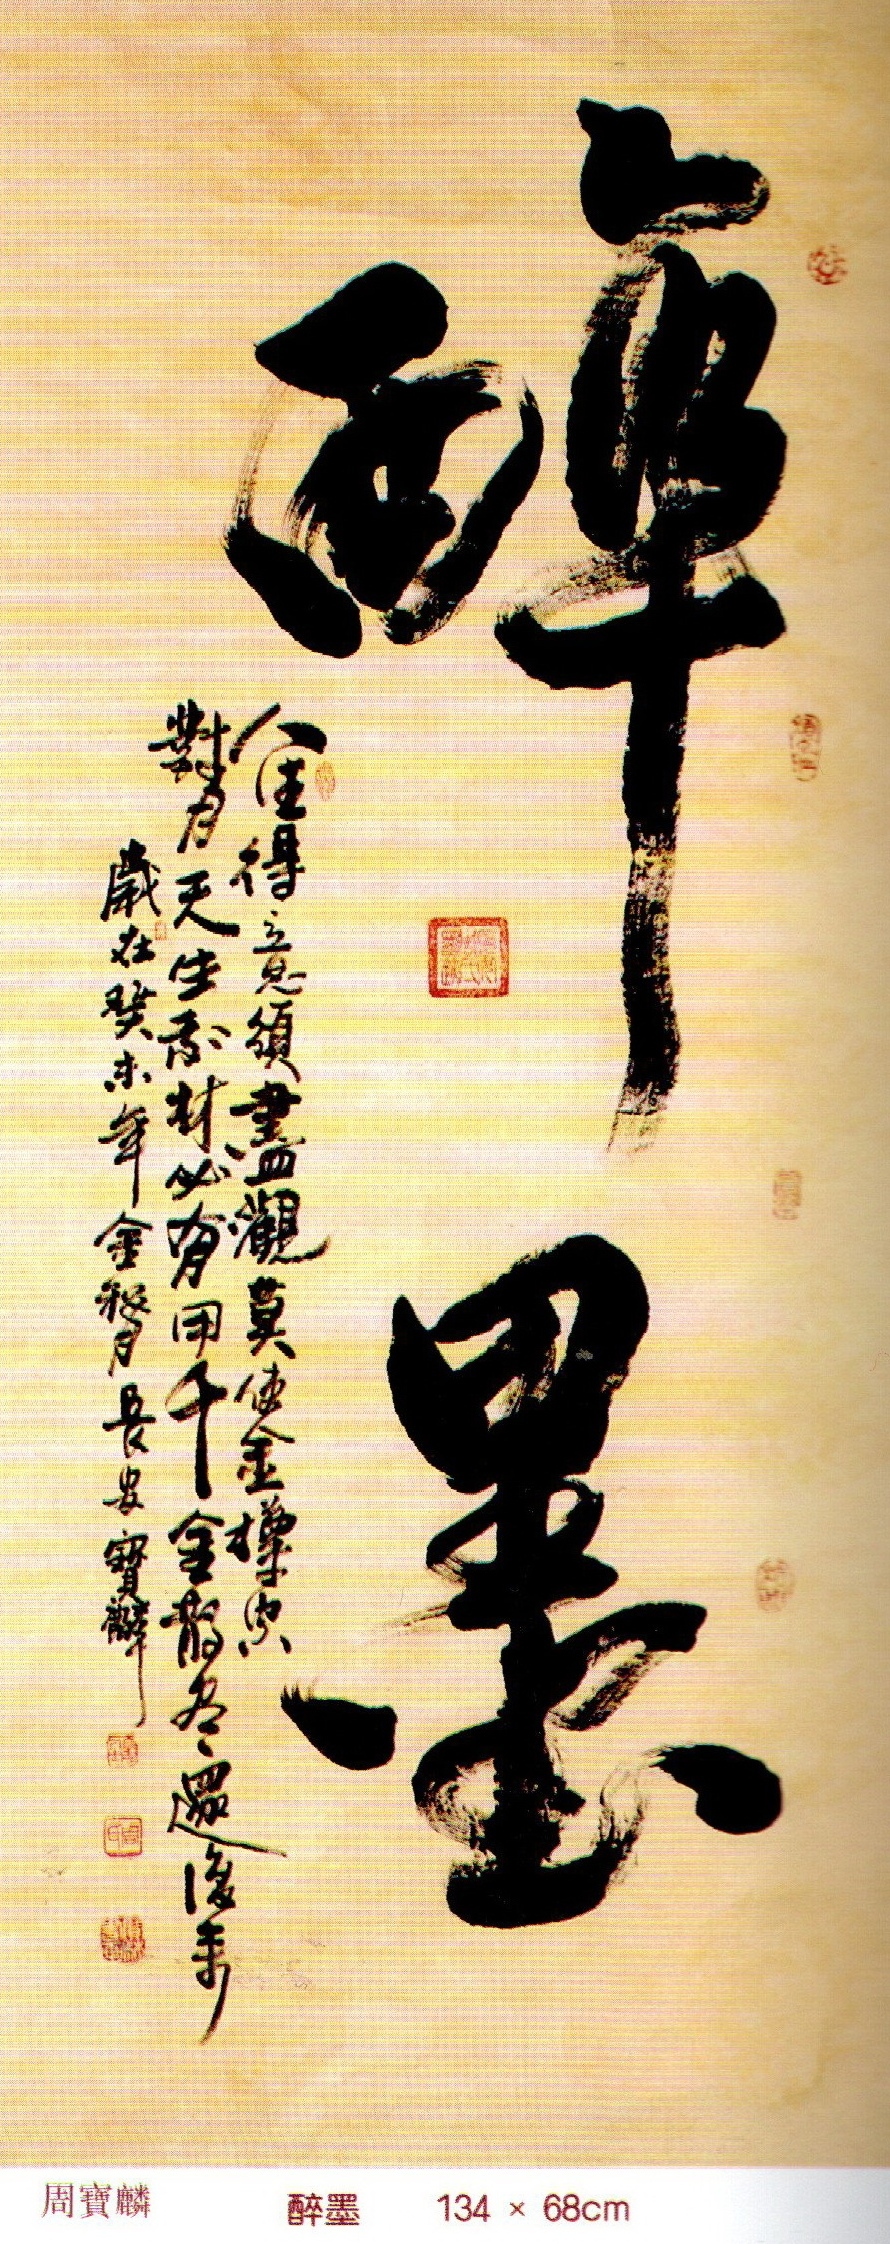 醉墨
人生得意須盡觀莫使金樽空
對月天生我材必有用千金散尽還復来
歲在癸未年金秋月長安寶麟
周寶麟 醉墨 134 × 68cm